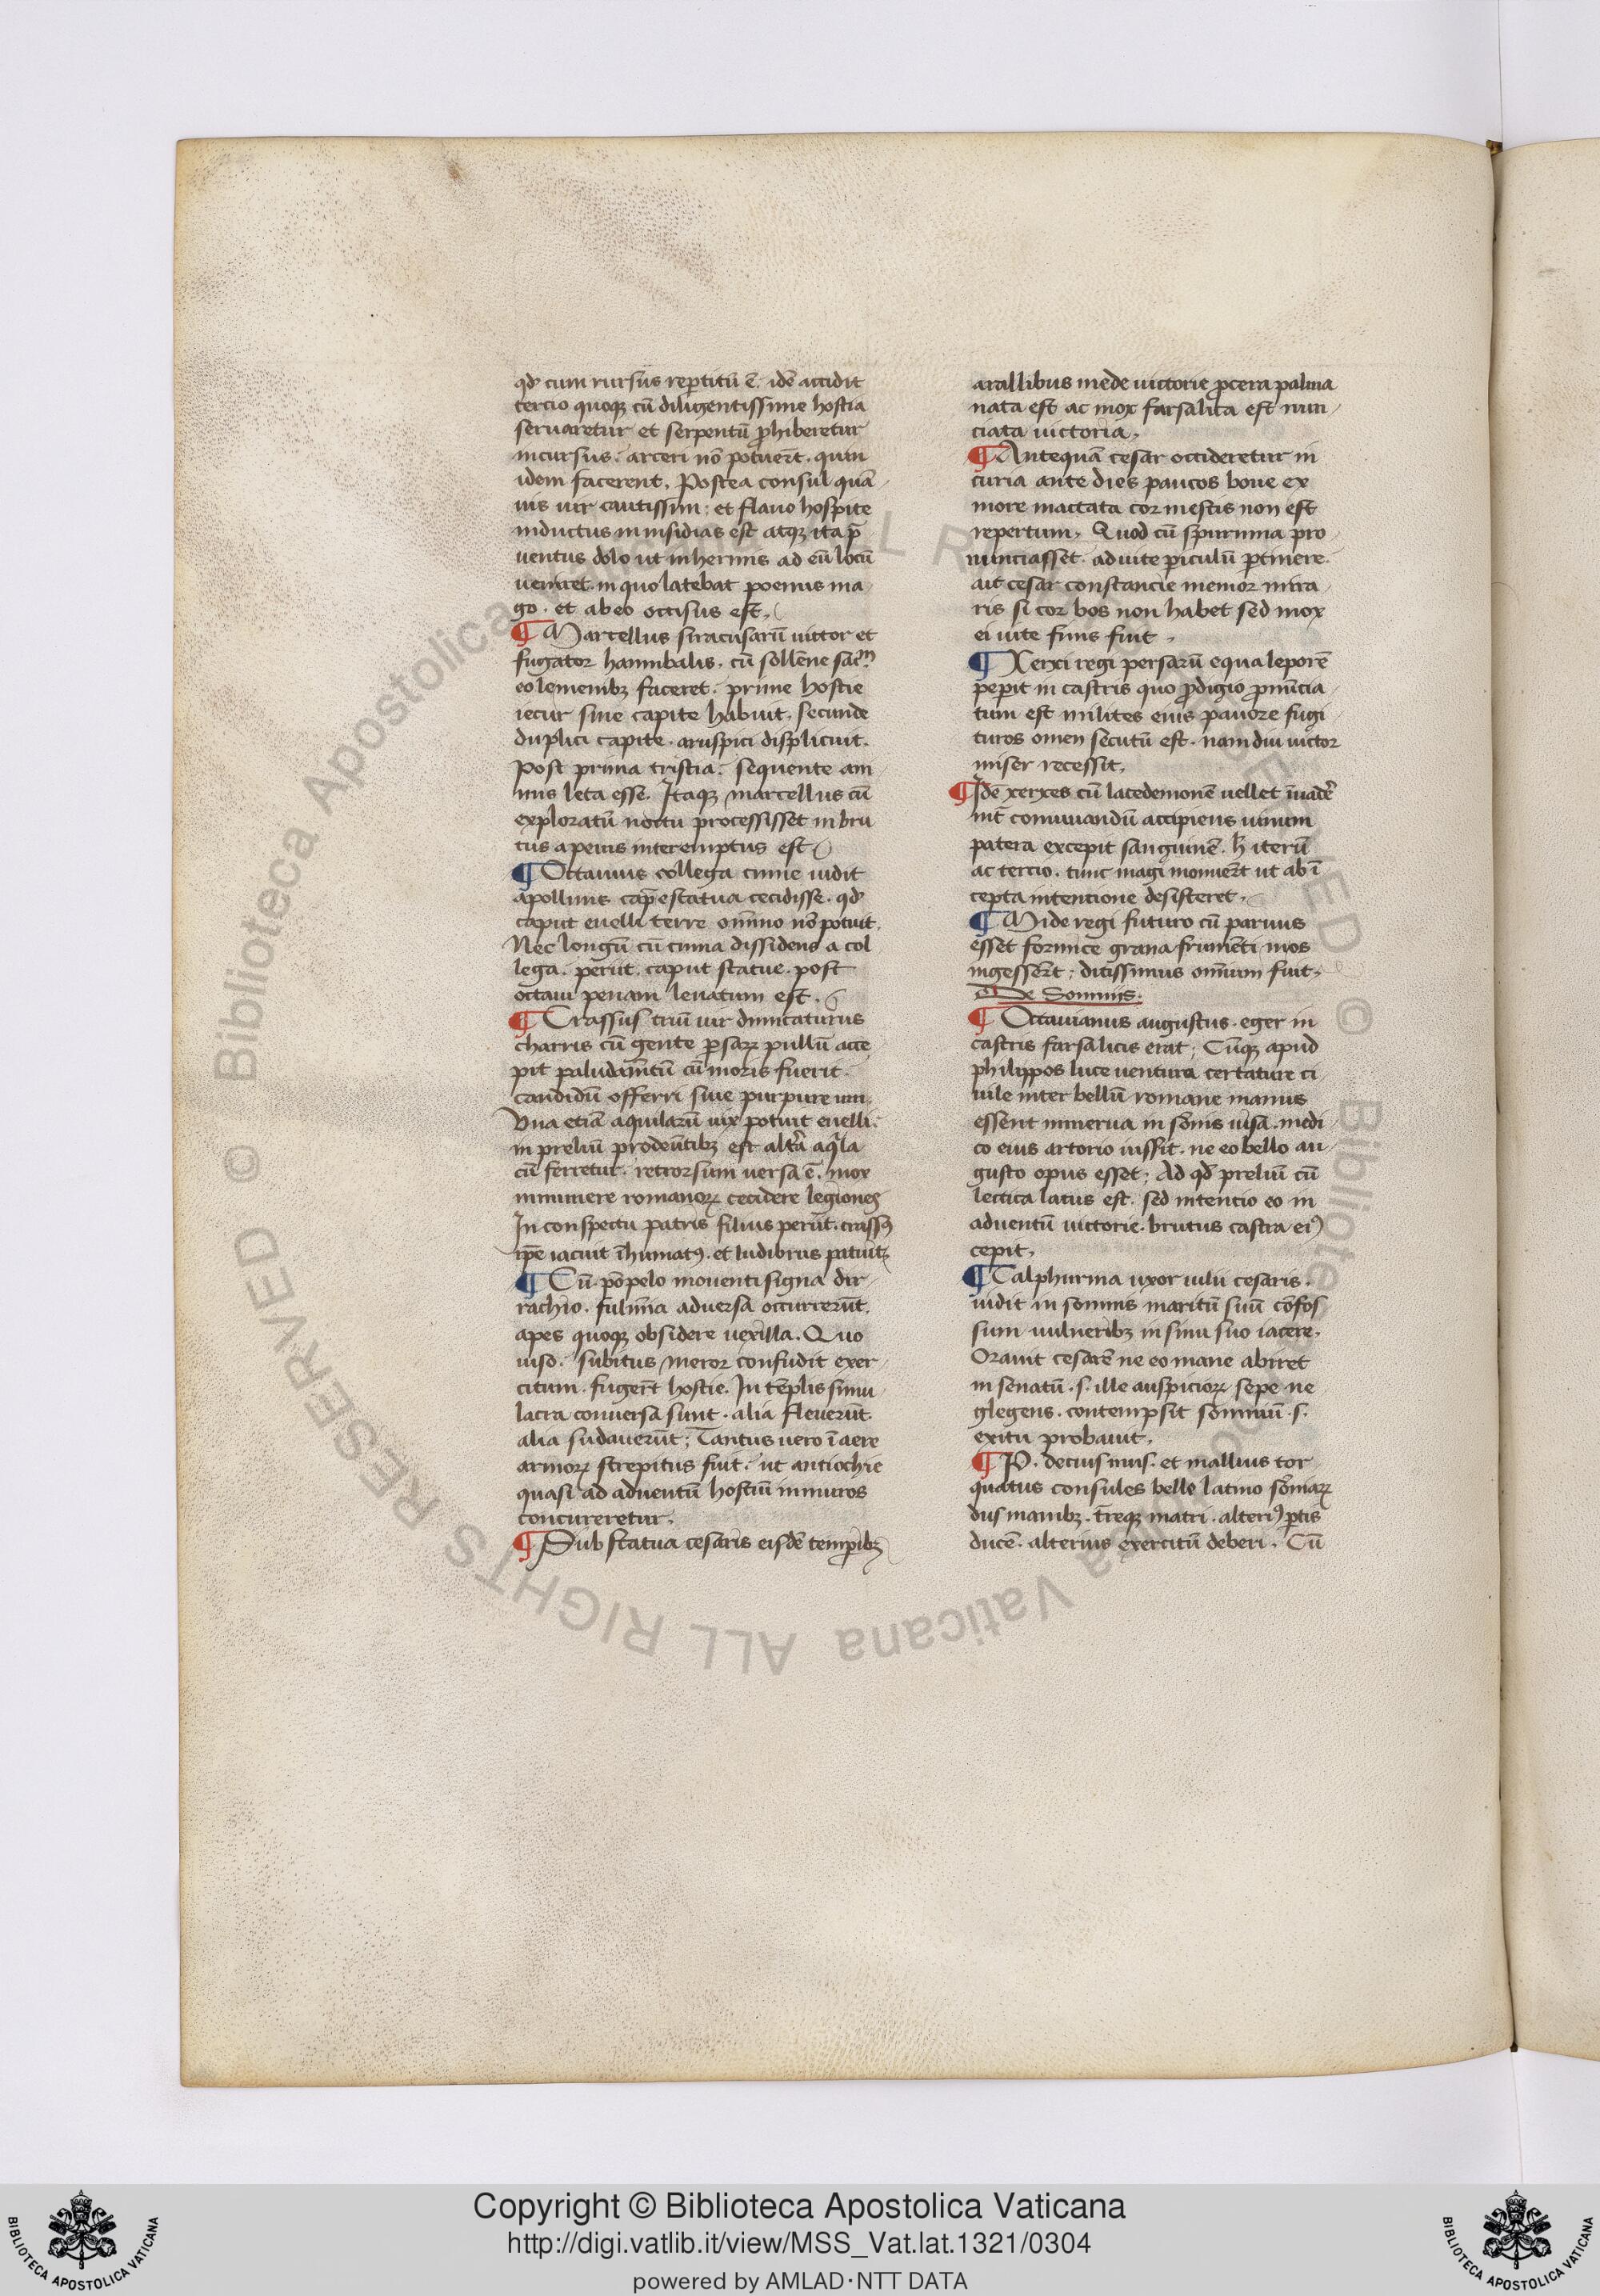 qd cum rursus reptitū ē. idē accidit
tercio quoqꝫ cū diligentissime hostia
seruaretur et serpentū ꝓhiberetur
incursus. arceri nō potuerт̄. quin
idem facerent. Postea consul quā
uis uir cautissim; et flauo hospite
inductus in insidias est atqꝫ ita p̄
uentus dolo ut inhermis ad eū locū
ueniret. in quo latebat poenus ma
go. et ab eo occisus est.
¶ Marcellus siracusarū uictor et
fugator hannibalis. cū sollēne sac̄m
eo lemenibꝫ faceret. prime hostie
iecur sine capite habuit. secunde
duplici capite. aruspici displicuit.
Post prima tristia. sequente am
nus leta esse. Itaqꝫ marcellus cū
exploratū noctu processisset in bru
tus a penis interemptus est
¶ Octauius collega cinne uidit
apollinis cap̄ estatua cecidisse. qd
caput euelli terre om̄ino nō potuit.
Nec longū cū cinna dissidens a col
lega. periit. caput statue. post
octaui penam leuatum est.
¶ Crassus triū uir dimicaturus
charris cū gente ꝑsaꝝ pullū acce
pit paludam̄tū cū moris fuerit.
candidū offerri siue purpureum.
Vna etiā aquilarū uix potuit euelli.
in preliū prodeūtibꝫ est altā aqla
cū ferretur. retrorsum uersa ē. mox
innumere romanoꝝ cecidere legiones
In conspectu patris filius periit. crassꝰ
ipē iacuit īhumatꝰ. et ludibriis patuit
¶ Cū. pōpeio mouenti signa dir
rachio. fulmīa aduersa occurrerūt.
apes quoqꝫ obsidere uexilla. Quo
uiso. subitus meror confudit exer
citum. fugerт̄ hostie. In tēplis simu
lacra conuersa sunt. alia fleuerūt.
alia sudauerūt; Tantus uero ī aere
armoꝝ strepitus fuit. ut antiochie
quasi ad aduentū hostiū in muros
concurreretur.
¶ Sub statua cesaris eisdē tempibꝫ
arallibus mede uictorie ꝓcera palma
nata est ac mox farsalica est nun
ciata uictoria.
¶ Antequā cesar occideretur in
curia ante dies paucos boue ex
more mactata cor in estis non est
repertum. Quod cū spurinna pro
nunciasset. ad uite ꝑiculū ꝑtinere.
ait cesar constancie memor mira
ris si cor bos non habet sed mox
ei uite finis fuit.
¶ Xerxi regi persarū equa leporē
peꝑit in castris quo ꝓdigio ꝓnūcia
tum est milites eius pauore fugi
turos omen secutū est. nam diu uictor
miser recessit.
¶ Idē xerxes cū lacedemonē uellet īuadē
int̄ conuiuandū accipiens uinum
patera excepit sanguinē. h̄ iterū
ac tercio. tunc magi monuerт̄ ut ab ī
cepta intencione desisteret.
¶ Mide regi futuro cū paruus
esset formice grana frumēti in os
ingesserт̄; ditissimus om̄ium fuit.
De Somniis.
¶ Octauianus augustus. eger in
castris farsalicis erat; Cūqꝫ apud
philippos luce uentura certature ci
uile inter bellū romane manus
essent minerua in sōnis iusā. medi
co eius artorio iussit. ne eo bello au
gusto opus esset; Ad qd preliū cū
lectica latus est. sed intencio eo in
aduentū uictorie. brutus castra eiꝰ
cepit.
¶ Calphurnia uxor iulii cesaris.
uidit in somnis maritū suū cōfos
sum uulneribꝫ in sinu suo iacere.
Orauit cesarē ne eo mane abiret
in senatū. s. ille auspicioꝝ sepe ne
glegens. contempsit somniū. s.
exitu probauit.
¶ P. decius mus. et mallius tor
quatus consules bello latino sōniaꝝ
dus manibꝫ. t̄reqꝫ matri. alteriꝰ ꝑtis
ducē. alterius exercitū deberi. Cū
Copyright © Biblioteca Apostolica Vaticana
http://digi.vatlib.it/view/MSS_Vat.lat.1321/0304
powered by AMLAD·NTT DATA